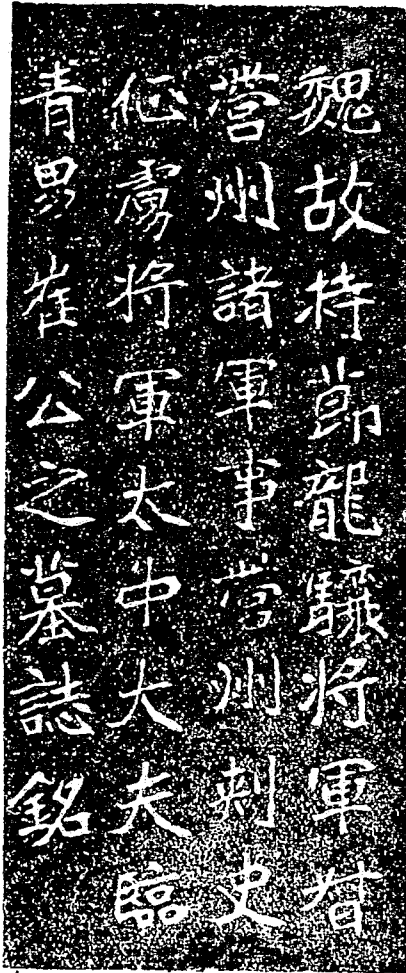 魏故持節龍驤將軍督
營州諸軍事營州刺史
征虜將軍太中大夫臨
青男崔公之墓誌銘